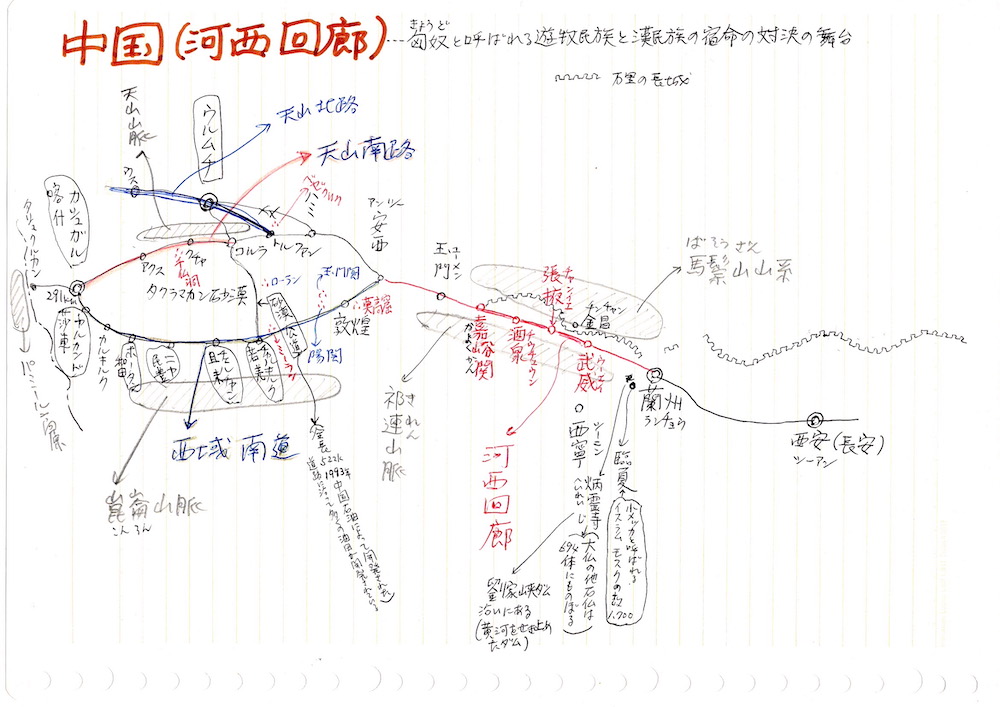 中国(河西回廊)
…匈奴と呼ばれる遊牧民族と漢民族の宿命の対決の舞台
きょうど
万里の長城
天山山脈
ウルムチ
天山北路
天山南路
ウス
ベゼクリク
ハミ
トルファン
コルラ
クチャ
千仏洞
アクス
カシュガル
喀什
タシュクルカン
パミール高原
291km
ヤルカンド
莎車
カルキルク
ホータン
和田
ニヤ
民豊
チャルチャン
且末
チャルキルク
若羌
タクラマカン砂漠
ローラン
砂漠公道
ミーラン
玉門関
陽関
敦煌
莫高窟
アンシー
安西
西域南道
崑崙山脈
こんろん
全長522k
1993年中国石油によって開発された
玉門
祁連山脈
きれん
嘉峪関
かよくかん
酒泉
チウチュワン
張掖
チャンイエ
チンチャン
金昌
武威
ウーウェイ
ばそうさん
馬鬃山山系
河西回廊
西寧
シーニン
蘭州
ランチョウ
西安(長安)
シーアン
臨夏
小メッカと呼ばれる
イスラム モスクの数
1,700
炳霊寺
へいれいじ
大仏の他石仏は
694体にものぼる
劉家峡ダム
沿いにある
(黄河をせき止め
たダム)